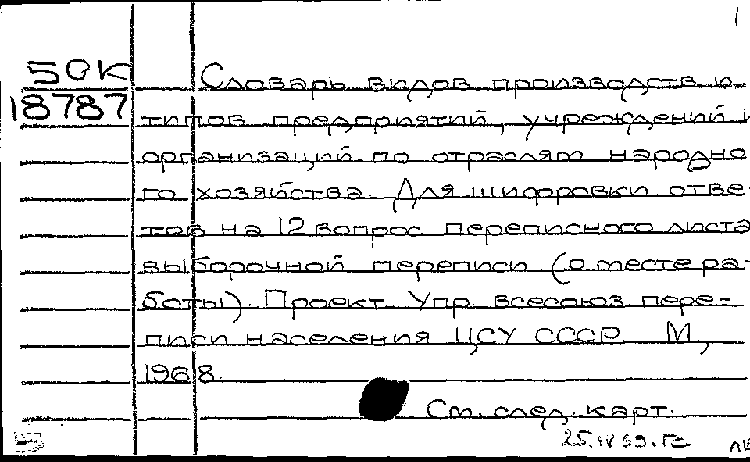 50К
18787
Словарь видов производств и
типов предприятий, учреждений и
организаций по отраслям народно
го хозяйства. Для шифровки отве
тов на 12 вопрос переписного листа
выборочной переписи (о месте ра-
боты). Проект. Упр Всесоюз пере-
писи населения ЦСУ СССР М,
1968.
См. след. карт.